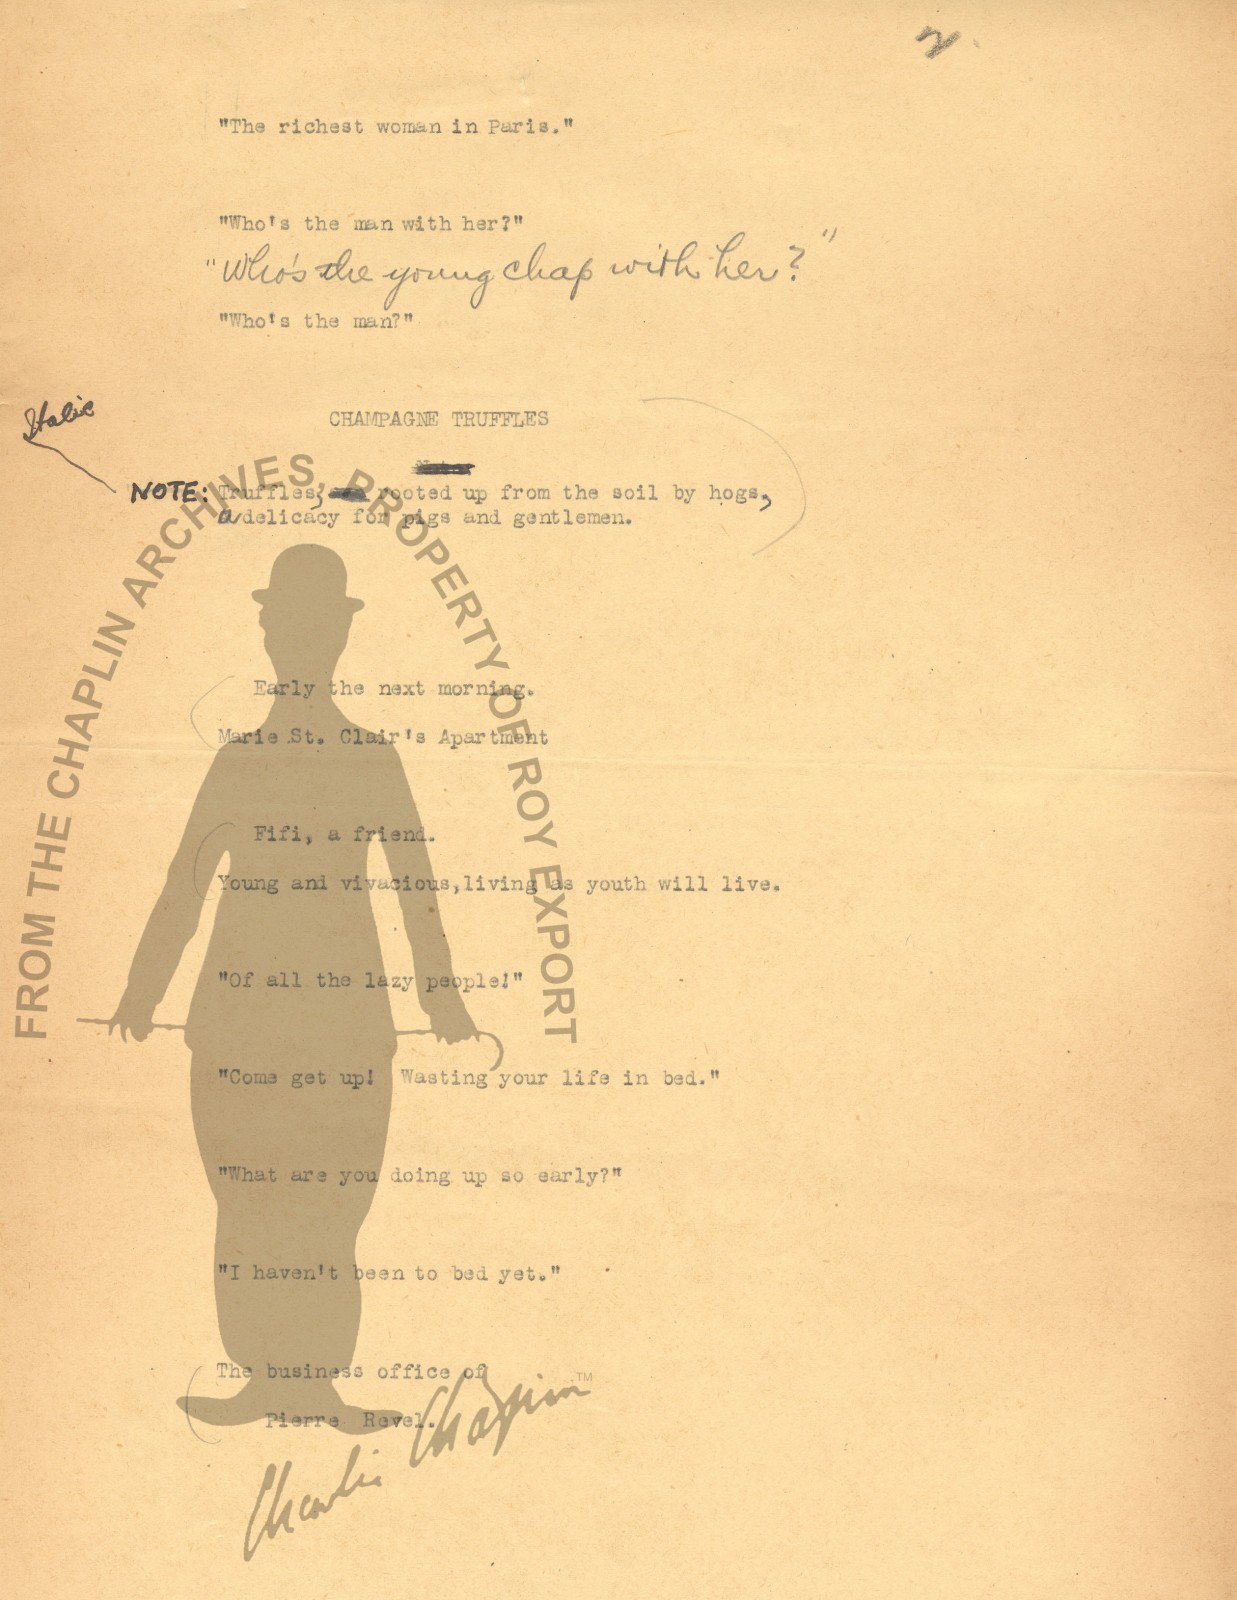 2
"The richest woman in Paris."
"Who's the man with her?"
"Who's the young chap with her?"
"Who's the man?"
Italic
CHAMPAGNE TRUFFLES
NOTE: Truffles, rooted up from the soil by hogs,
a delicacy for pigs and gentlemen.
Early the next morning.
Marie St. Clair's Apartment
Fifi, a friend.
Young and vivacious,living as youth will live.
"Of all the lazy people!"
"Come get up! Wasting your life in bed."
"What are you doing up so early?"
"I haven't been to bed yet."
The business office of
Pierre Revel.
FROM THE CHAPLIN ARCHIVES, PROPERTY OF ROY EXPORT
Charlie Chaplin TM